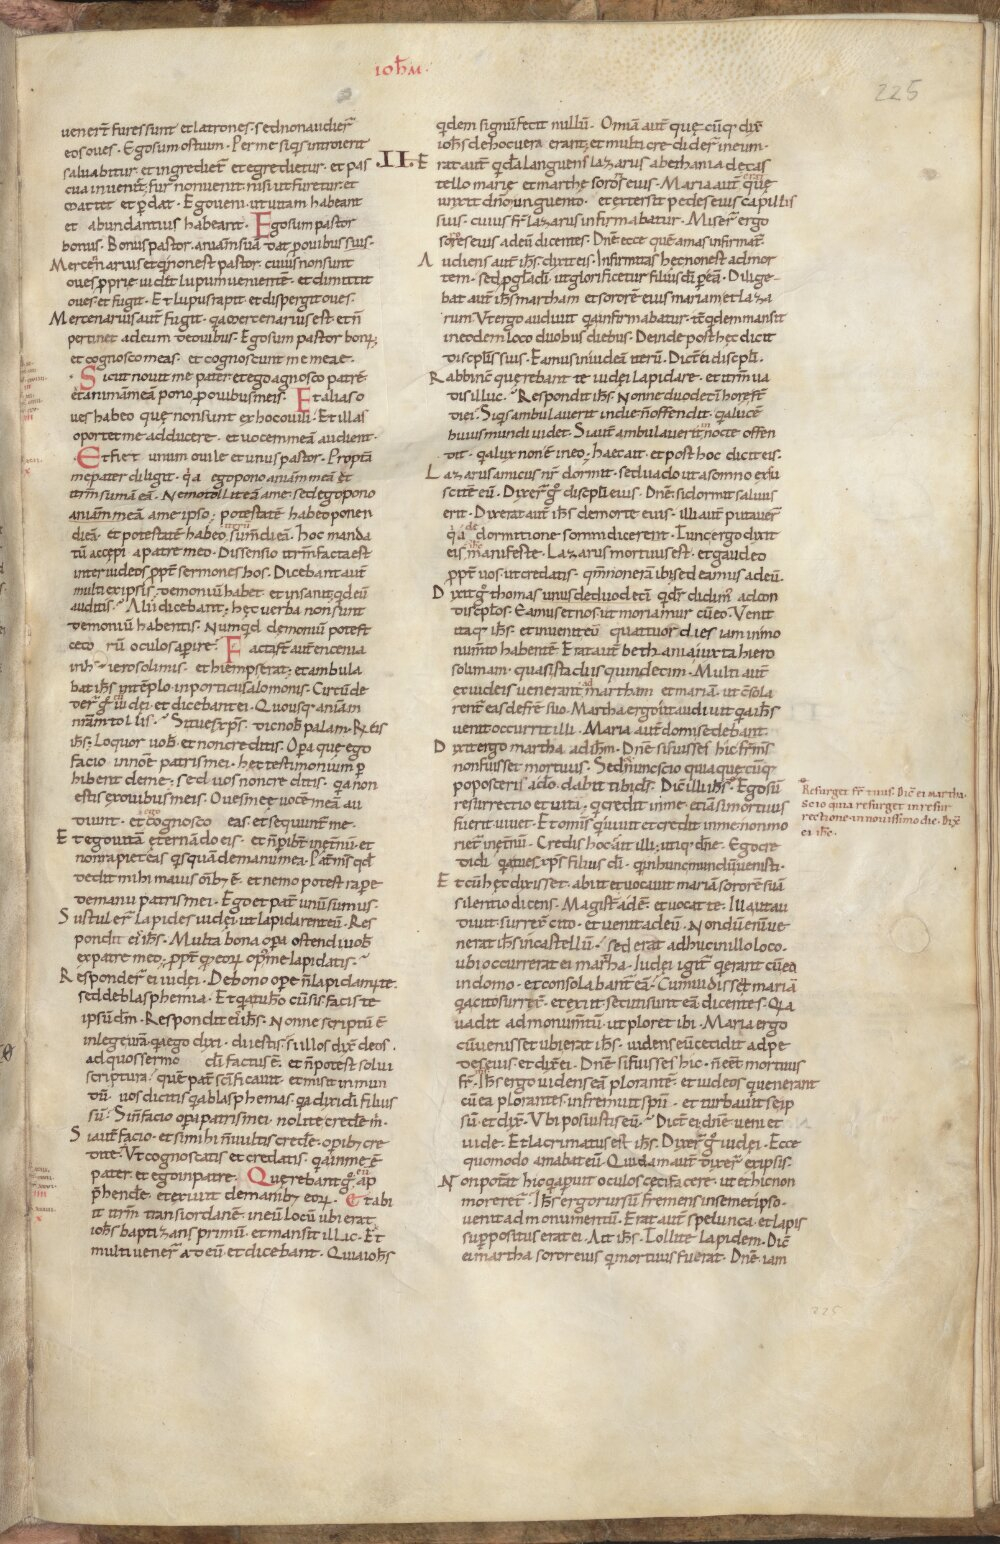 IOH̅M·
225
uener̅t fures sunt et latrones · sed non audier̅
eos oues · Ego sum ostium · Per me siq̇s introierit
saluabitur · et ingrediet᷑ et egredietur · et pas
cua inueniet᷑; fur non uenit nisi ut furetur · et
mactet et p̱dat · Ego ueni ut uitam habeant
et abundantius habeant · Ego sum pastor
bonus · Bonus pastor · animā suā dat p̱ ouibus suis ·
Mercennarius et qi non est pastor · cuius non sunt
oues proprię uidit lupum uenientē · et dimittit
oues et fugit · Et lupus rapit et dispergit oues ·
Mercenarius aut̅ fugit · q̇a mercenarius est · et n̅
pertinet ad eum de ouibus · Ego sum pastor bonꝰ;
et cognosco meas · et cognoscunt me meae ·
Sicut nouit me pater · et ego agnosco patrē ·
et animā meā pono p̱ ouibus meis · Et alias o
ues habeo quę non sunt ex hoc ouili · Et illas
oportet me adducere · et uocem meā audient ·
Et fiet unum ouile et unus pastor · Propt̅a
me pater diligit · q̇a ego pono animā meā et
it̅m sumā eā · Nemo tollit eā a me · sed ego pono
animā meā a me ipso; potestatē habeo ponen
di eā · et potestatē habeo it̅rū sum̅di eā · Hoc manda
tū accepi a patre meo · Dissensio it̅m facta est
inter iudeos ꝓpt̅ sermones hos · Dicebant aut̅
multi ex ipsis; demoniū habet · et insanit; qd eū
auditis · Alii dicebant; hęc uerba non sunt
demoniū habentis · Numqd demoniū potest
ceco rū oculos aperire · Facta st̅ aut̅ encenia
in hierosolimis · et hiemps erat; et ambula
bat ih̅s in tēplo · in porticu salomonis · Circūde
der̅ g̊ eū iudei · et dicebant ei · Quousq; animā
nr̅am tollis · Si tu es xp̅s · dic nob̅ palam · R̅ eis
ih̅s; Loquor uob̅ · et non creditis · Opa que ego
facio in noīe patris mei · hęc testimonium p̱
hibent de me; sed uos non creditis · q̇a non
estis ex ouibus meis · Oues meę uocē meā au
diunt · et ego cognosco eas · et sequunt᷑ me ·
Et ego uitā eternā do eis · et n̅ pibt̅ in et̅nū · et
non rapiet eas q̇squā de manu mea · Pat̅ m̅s qd
dedit mihi maius om̅ib; ē · et nemo potest rapere
de manu patris mei · Ego et pat̅ unū sumus ·
Sustuler̅ lapides iudei ut lapidarent eū · Res
pondit ei ih̅s · Multa bona opa ostendi uob̅
ex patre meo; ꝓpt̅ qd eoꝝ opus me lapidatis ·
Responder̅ ei iudei · De bono ope n̅ lapidamus te ·
sed de blasphemia · Et q̇a tu hō cū sis facis te
ipsū dm̅ · Respondit ei ih̅s · Nonne scriptū ē
in lege ur̅a · q̇a ego dixi · dii estis · si illos dix̅ deos ·
ad quos sermo di̅ factus ē · et n̅ potest solui
scriptura · quē pat̅ sc̅ificauit · et misit in mun
dū · uos dicitis q̇a blasphemas · q̇a dixi di̅ filius
sū · Si n̅ facio opa patris mei · nolite crede m̅ ·
Si aut̅ facio · et si mihi n̅ uultis crede · opib; cre
dite · Ut cognoscatis et credatis · q̇a in me ē
pater · et ego in patre · Quęrebant g̊ eū ap
p̱hendere · et exiuit de manib; eoꝝ · Et abi
it it̅m trans iordanē · in eū locū ubi erat
ioh̅s baptizans primū · et mansit illic · Et
multi uener̅ ad eū et dicebant · Quia ioh̅s
qdem signū fecit nullū · Omīa aut̅ quęcūq; dix̅
ioh̅s de hoc uera erant; et multi crediderᷓ in eum ·
.II. Erat aut̅ qda̅ languens lazarus a bethania de cas
tello marię et marthę sororis eius · Maria aut̅ erat quę
unxit dn̅m unguento · et extersit pedes eius capillis
suis · cuius fr̅ lazarus infirmabatur · Miser̅ ergo
sorores eius ad eū dicentes · Dn̅e ecce quē amas infirmat᷑ ·
Audiens aut̅ ih̅s · dixit eis · Infirmitas hęc non est ad mor
tem · sed p̱ gl̅a di̅ · ut glorificetur filius di̅ p̱ eā · Dilige-
bat aut̅ ih̅s martham et sororē eius mariam et laza
rum · Ut ergo audiuit q̇a infirmabatur · tc̅ qdem mansit
in eodem loco duobus diebus · Deinde post hęc dicit
discipl̅is suis · Eamus in iudeā iterū · Dicūt ei discipl̅i ·
Rabbi nc̅ quęrebant te iudei lapidare · et it̅m ua
dis illuc · Respondit ih̅s · Nonne duodeci̅ horę st̅
diei · Siq̇s ambulauerit in die n̅ offendit · q̇a lucē
huius mundi uidet · Si aut̅ ambulauerit in nocte offen
dit · q̇a lux non ē in eo · hęc ait · et post hoc dicit eis ·
Lazarus amicus nr̅ dormit · sed uado ut a somno exsu
scitē eū · Dixer̅ g̊ discipl̅i eius · Dn̅e · si dormit saluus
erit · Dixerat aut̅ ih̅s de morte eius · illi aut̅ putauer̅
q̇a de dormitione somni diceret · Tunc ergo dixit
eis ih̅s manifeste · Lazarus mortuus est · et gaudeo
ꝓpt̅ uos · ut credatis · qm̅ non erā ibi · sed eamus ad eū ·
Dixit g̊ thomas unus de duodecī · qi dr̅ didimꝰ ad con
discip̅los · Eamus et nos ut moriamur cū eo · Venit
itaq; ih̅s · et inuenit eū quattuor dies iam in mo
num̅to habentē · Erat aut̅ bethania iuxta hiero
solimam · quasi stadiis quindecim · Multi aut̅
ex iudeis uenerant ad martham et mariā · ut c̅sola
rent᷑ eas de fr̅e suo · Martha ergo ut audiuit q̇a ih̅s
uenit occurrit illi · Maria aut̅ domi sedebant ·
Dixit ergo martha ad ih̅m · Dn̅e si fuisses hic fr̅ m̅s
non fuisset mortuus · Sed et nunc scio quia quęcūq;
poposceris a do̅ · dabit tibi ds̅ · Dic̅ illi ih̅s · Ego sū
resurrectio et uita; qi credit in me · etiā si mortuus
fuerit uiuet · Et om̅is qi uiuit et credit in me non mo
riet᷑ in et̅nū · Credis hoc · ait illi; utiq; dn̅e · Ego cre
didi q̇a tu es xp̅s filius di̅ · qi in hunc mundū uenisti ·
Et cū hęc dixisset · abiit et uocauit mariā sororē suā
silentio dicens · Magist̅ adē · et uocat te · Illa ut au
diuit surrex̅ cito · et uenit ad eū · Nondū eni̅ ue
nerat ih̅s in castellū · sed erat adhuc in illo loco ·
ubi occurrerat ei martha · Iudei igit᷑ qi erant cū ea
in domo · et consolabant᷑ eā · Cum uidissent mariā
q̇a cito surrex̅ · et exiit · secuti sunt eā dicentes · Q̇a
uadit ad monum̅tū · ut ploret ibi · Maria ergo
cū uenisset ubi erat ih̅s · uidens eū cecidit ad pe
des eius · et dix̅ ei · Dn̅e si fuisses hic · n̅ eet̅ mortuus
fr̅ ms̅ · Ih̅s ergo uidens eā plorantē · et iudeos qui uenerant
cū ea plorantes · infremuit sp̅u · et turbauit seip
sū · et dix̅ · Ubi posuistis eū · Dicūt ei · dn̅e ueni et
uide · Et lacrimatus est ih̅s · Dixer̅ g̊ iudei · Ecce
quomodo amabat eū · Quidam aut̅ dixer̅ ex ipsis ·
Non poterat hic qi apuit oculos ceci facere · ut et hic non
moreret᷑ · Ih̅s ergo rursū fremens in semetipso ·
uenit ad monumentū · Erat aut̅ spelunca · et lapis
suppositus erat ei · Ait ih̅s · Tollite lapidem · Dic̅
ei martha soror eius qi mortuus fuerat · Dn̅e · iam
Resurget fr̅ tuus · Dic̅ ei martha ·
Scio quia resurget in resur
rectione · in nouissimo die · Dix̅
ei ih̅s ·
225